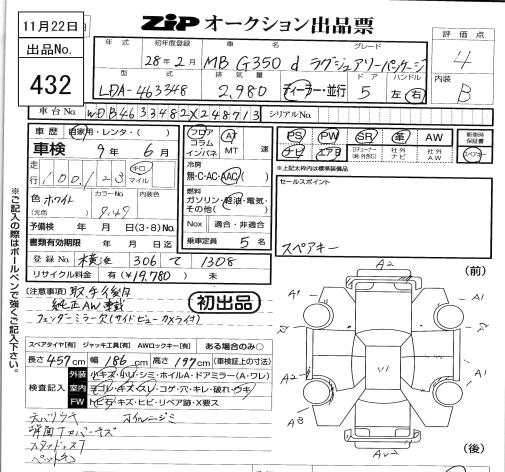 11月22日
ZIP オークション出品票
出品No.
432
年式 初年度登録 車名 グレード
28年2月 MB G350 d ラグジュアリーパッケージ
型式 排気量 ドア ハンドル
LDA-463348 2,980 ディーラー・並行 5 左・右
評価点
4
内装
B
車台No. WDB4633482X248713 シリアルNo.
車歴 自家用・レンタ・( )
車検 9年 6月
走行 100,123 キロ マイル
色 ホワイト カラーNo. 内装色
(元色) 9.49
予備検 年 月 日 (3・8) No.
書類有効期限 年 月 日迄
登録No. 横浜 306 て 1308
リサイクル料金 有(¥19,780) 未
フロア コラム インパネ AT MT 速
冷房
無・C・AC・AAC
燃料
ガソリン・軽油・電気・その他( )
Nox 適合・非適合
乗車定員 5名
PS PW SR 革 AW
ナビ エアB 社外ナビ 社外AW
新車時保証書
スペアキー
※上記太枠内は標準装備品
セールスポイント
スペアキー
(注意事項) 取手後日
純正AW車載
フェンダーミラー欠(サイドビューカメラ付)
初出品
スペアタイヤ[有] ジャッキ工具[有] AWロックキー[有] ある場合のみ○
長さ 457cm 幅 186cm 高さ 197cm (車検証上の寸法)
検査記入
外装 小キズ・小U・シミ・ホイルA・ドアミラー(A・ワレ)
室内 ヨゴレ・キズ・スレ・コゲ・穴・キレ・破れ・ウキ
FW トビ石・キズ・ヒビ・リペア跡・X要ス
天バリウキ
背面Tカバーキズ
スタッドレスT
(前)
A2
A1
A1
A2
A1
A3
A1
A2
(後)
※ご記入の際はボールペンで強くご記入下さい。